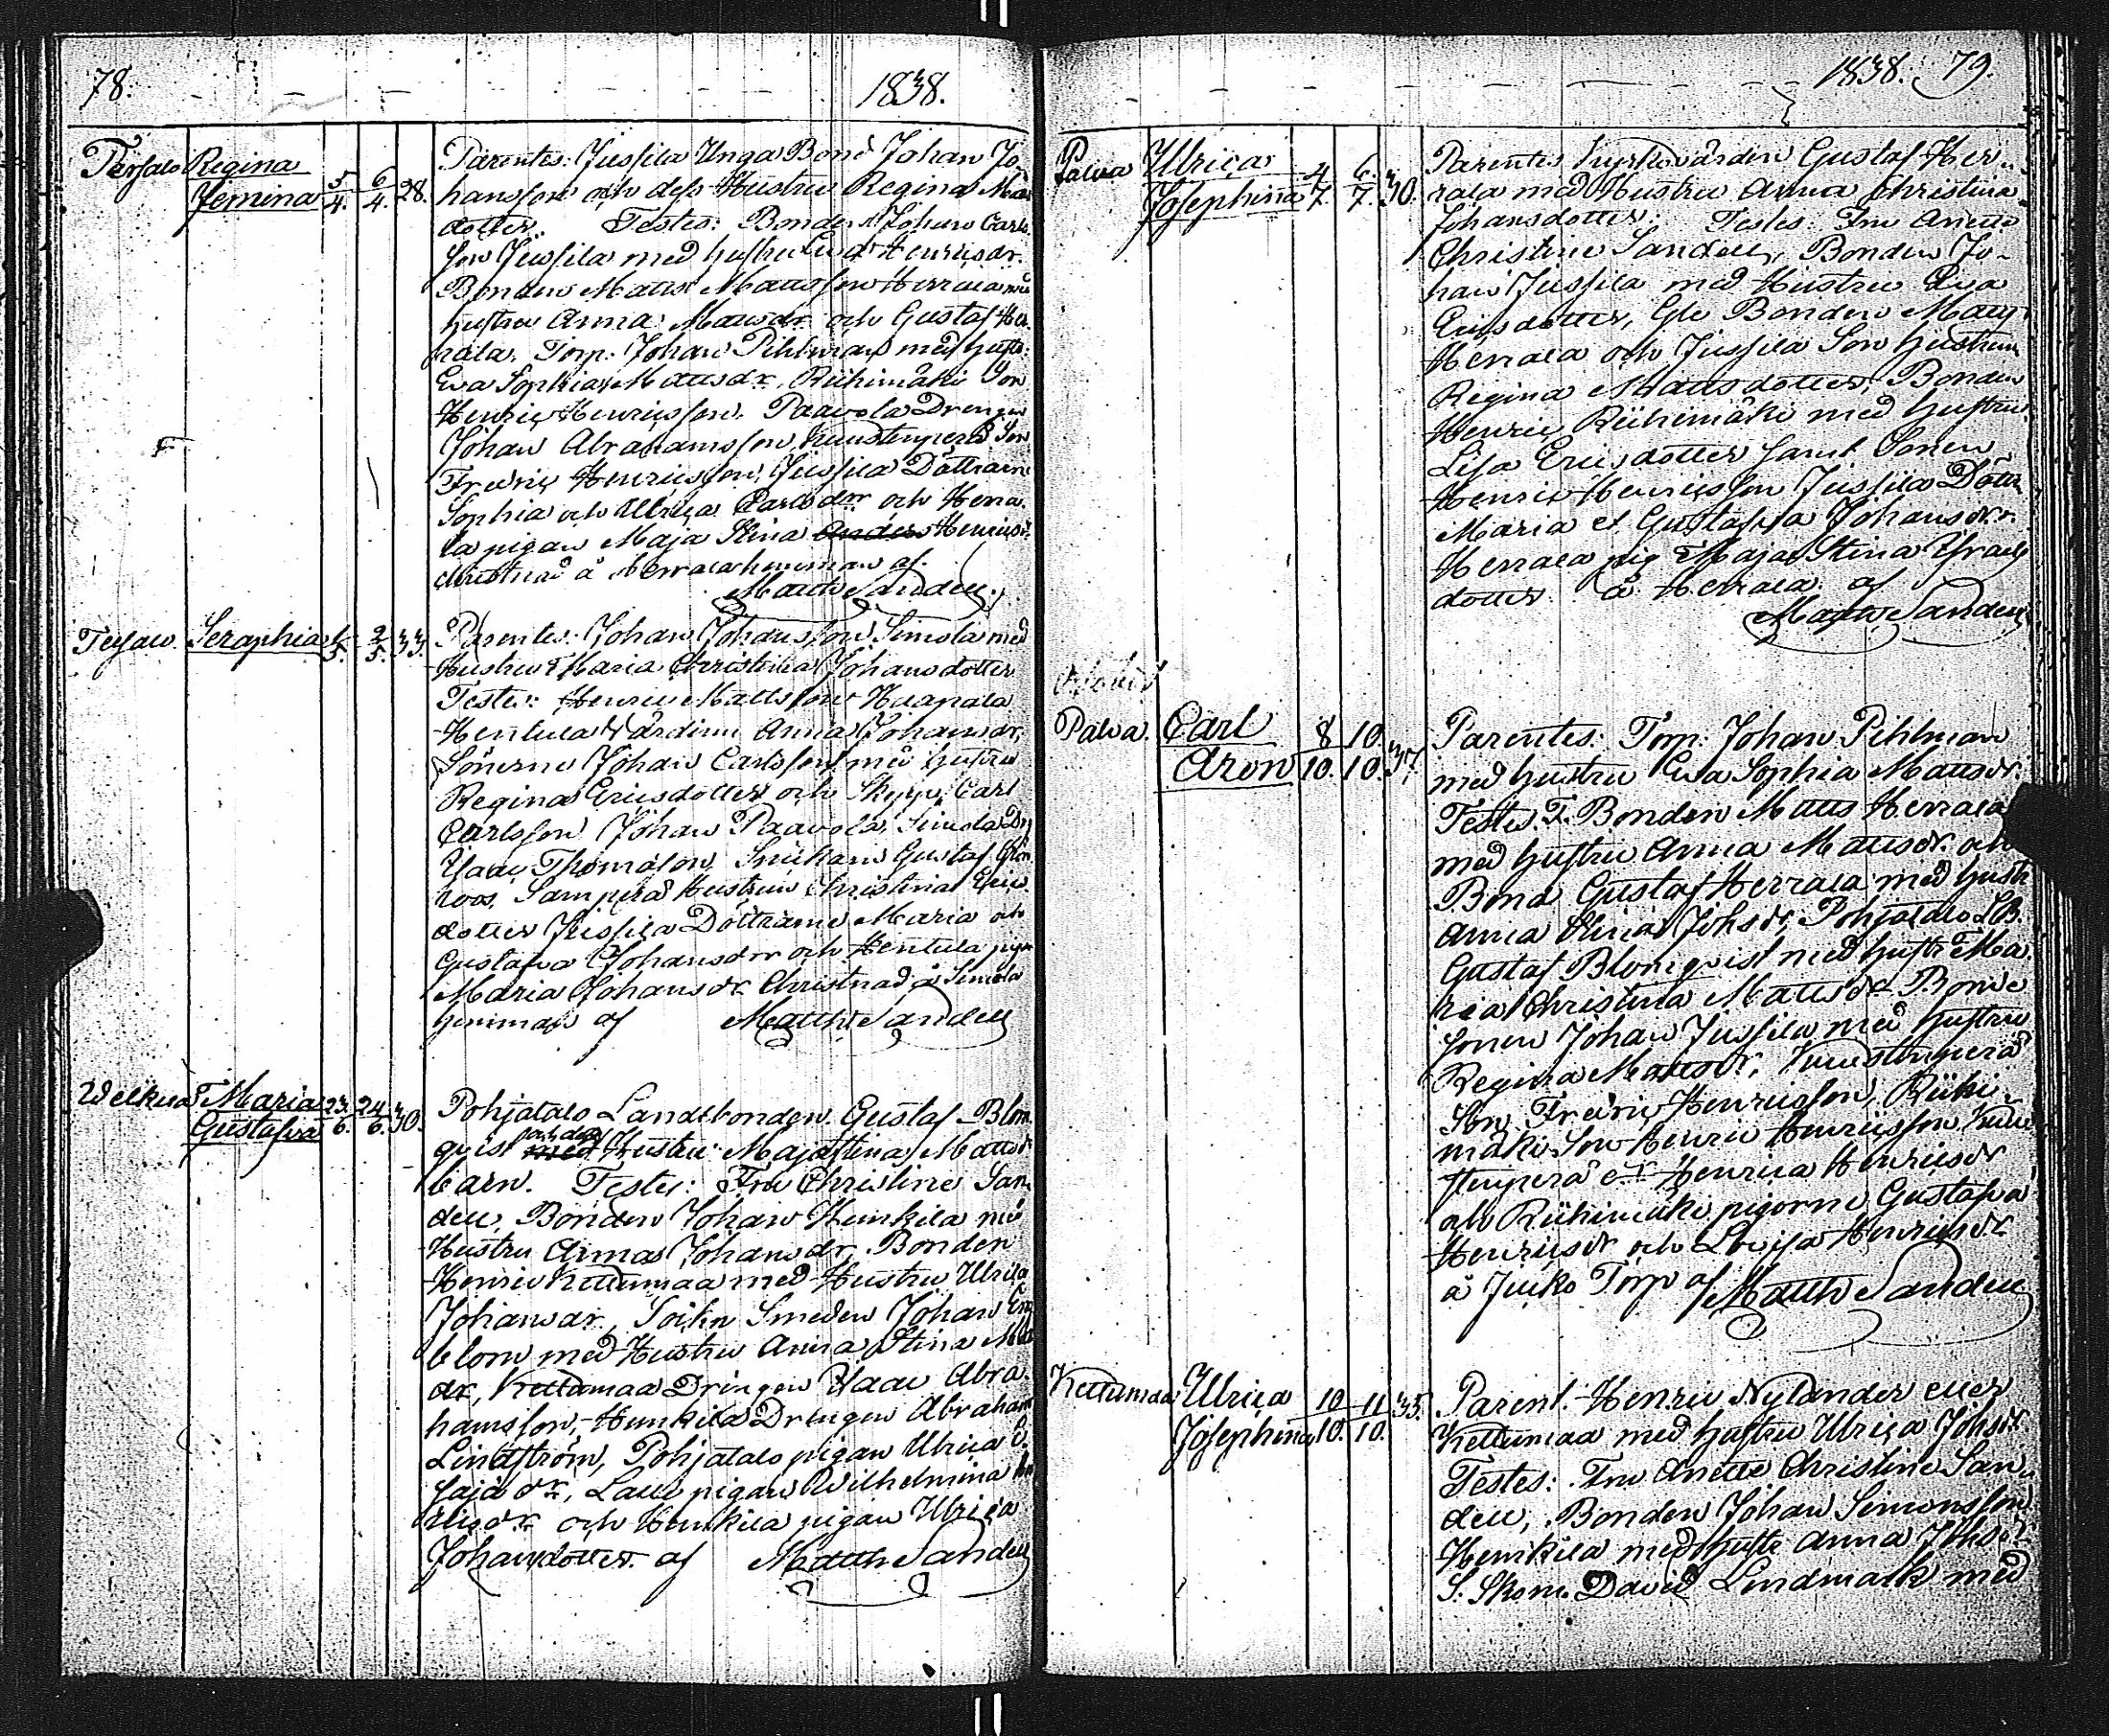 78. 1838.
Tersalo Regina Parentes: Jussila Unga Bond Johan Jo
Jemina 5/4. 6/4. 28. hansson och dess Hustru Regina Matts
dotter. Testes: Bonden Johan Carls
son Jussila med hustru Henricsdr.
Bonden Matts Mattsson Herrala med
hustru Anna Mattsdr och Gustaf Her
rala. Torp. Johan Pihlman med hustr:
Eva Sophia Mattsdr. Riihimäki Son
Henric Henricsson. Paavola Drengen
Johan Abrahamsson, Kuustenperä Son
Fredric Henricsson, Jussila Döttrarne
Sophia och Ulrica Carlsdrr och Herra
la pigan Maja Stina Anders Henricsdr.
christnad å Herrala hemman af
Matth Sandell.
Tersalo. Seraphia 1/5. 2/5. 33. Parentes: Johan Johansson Simola med
Hustru Maria Christina Johansdotter
Testes: Henric Mattsson Haapala
Hentula Värdinn Anna Johansdr,
Sönerne Johan Carlsson med hustru
Regina Ericsdotter och Skepp. Carl
Carlsson Johan Paavola, Simola Dr
Isaac Thomasson Snickare Gustaf Grön
roos, Samperä Hustrun Christina Erics
dotter Jussila Döttrarne Maria och
Gustafva Johansdrr och Hentula pigan
Maria Johansdr Christnad å Simola
hemman af Matth Sandell
Welkua Maria 23/6. 24/6. 30. Pohjatalo Landtbonden Gustaf Blom
Gustafva qvist med och dess Hustru Maja Stina Mattsdr
barn. Testes: Fru Christine San
dell, Bonden Johan Hunkila med
Hustru Anna Johansdr, Bonden
Henric Kettumaa med Hustru Ulrica
Johansdr, Sockn Smeden Johan
blom med Hustru Anna Stina
dr, Kettumaa Drengen Isaac Abra
hamsson, Hunkila Drengen Abraham
Lindström, Pohjatalo pigan Ulrica
dr, pigan Wilhelmina
och Hunkila pigan Ulrica
Johansdotter. af Matth Sandell
1838. 79.
Palva Ulrica Parentes Kyrkovärden Gustaf Her
Josephina 4/7. 6/7. 30. rala med Hustru Anna Christina
Johansdotter. Testes: Fru Anette
Christine Sandell, Bonden Jo
han Jussila med Hustru Eva
Ericsdotter, Gle Bonden Matts
Herrala och Jussila Son hustrun
Regina Mattsdotter, Bonden
Henric Riihimäki med hustru
Lisa Ericsdotter samt Sonen
Henric Henricsson Jussila Döttr
Maria et Gustafva Johansdrr.
Herrala pig Maja Stina Israels
dotter å Herrala af
Matth Sandell
Palva. Carl 8/10. 10/10. 37. Parentes: Torp. Johan Pihlman
Aron med hustru Eva Sophia Mattsdr.
Testes. F. Bonden Matts Herrala
med hustru Anna Mattsdr. och
Bond Gustaf Herrala med hustr
Anna Stina Johsdr, Pohjatalo L.B.
Gustaf Blomqvist med hustr Ma
ria Christina Mattsdr Bonde
sonen Johan Jussila med hustru
Regina Mattsdr, Kuustenperä
Son Fredric Henricsson, Riihi
mäki Son Henric Henricsson Kuu
stenperä dr Henrica Henricsdr
och Riihimäki pigorne Gustafva
Henricsdr och Lovisa Henricsdr
å Juuko Torp af Matth Sandell
Kettumaa Ulrica 10/10. 11/10. 35. Parent. Henric Nylander eller
Josephina Kettumaa med hustru Ulrica Johsdr
Testes: Fru Anette Christine San
dell, Bonden Johan Simonsson
Hunkila med hustr Anna Johsdr
S. Skom. David Lindmark med